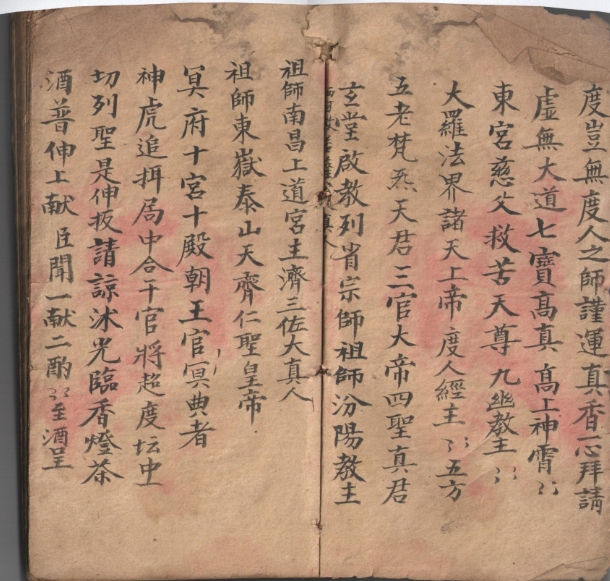 度豈無度人之師謹運真香一心拜請
虛無大道七寶髙真髙上神霄〻〻
東宮慈父救苦天尊九幽教主〻〻
大羅法界諸天上帝度人經主〻〻五方
五老梵炁天君三官大帝四聖真君
玄堂啟教列省宗師祖師汾陽教主
真人
祖師南昌上道宮主濟三佐大真人
祖師東嶽泰山天齊仁聖皇帝
冥府十宮十殿朝王官冥典者
神虎追拘局中合干官將超度坛中
切列聖是伸拔請諒沐光臨香燈茶
酒普伸上献臣聞一献二酌〻〻至酒呈